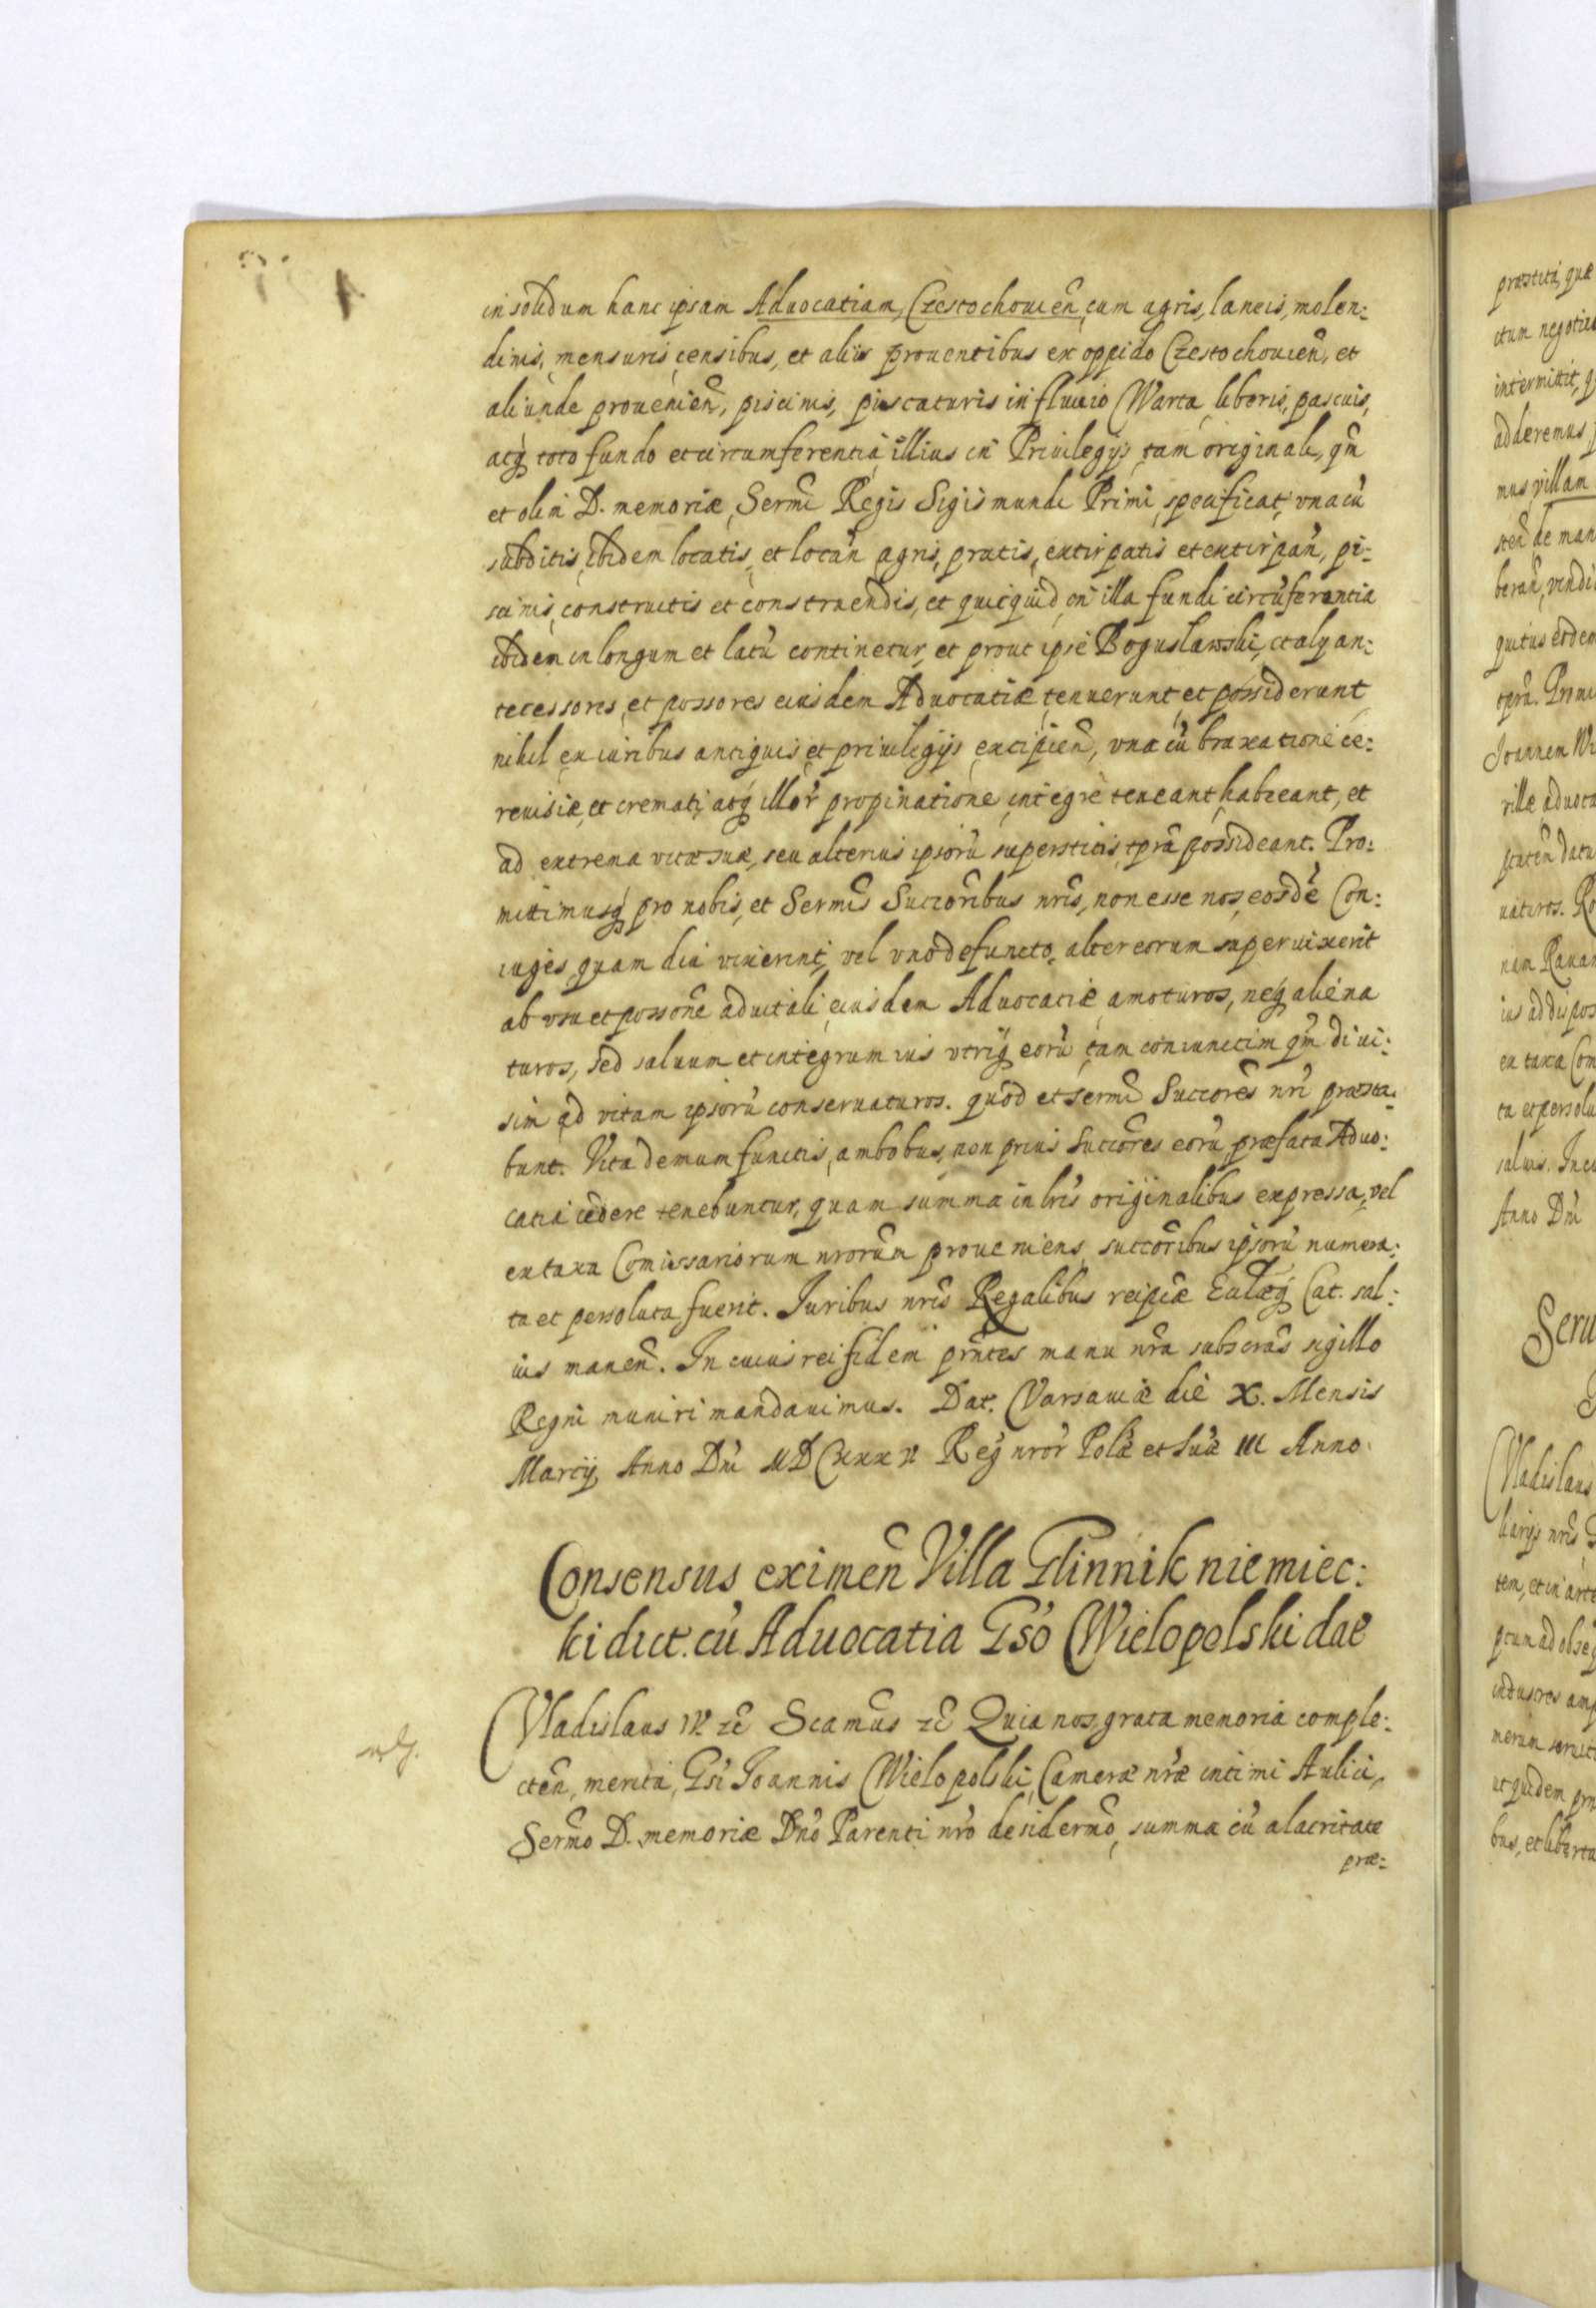 in solidum hanc ipsam Aduocatiam Czestochouien̄ cum agris, laneis, molen:
dinis, mensuris censibus, et alijs prouentibus ex oppido Czestochouien̄, et
aliunde prouenien̄, piscinis, piscaturis in fluuio Warta liberis, pascuis,
atq toto fundo et circumferentia illius in Priuilegijs tam originali, qm̄
et olim D. memoriæ Sermi Regis Sigismundi Primi specificat, vna cu̓
subditis ibidem locatis, et locan̄ agris, pratis, extirpatis et extirpan̄, pi:
scinis constructis et construendis, et quicquid in illa fundi circu̓ferentia
ibidem in longum et latu̓ continetur, et prout ipse Boguslawski, et alij an:
tecessores et possores eiusdem Aduocatiæ tenuerunt et possiderunt
nihil ex iuribus antiquis et priuilegijs excipien̄, vna cu̓ braxatione ce:
reuisiæ, et cremati, atq illor̓ propinatione integre teneant, habeant, et
ad extrema vitæ suæ, seu alterius ipsoru̓ superstitis tpra possideant. Pro:
mittimusq pro nobis, et Sermis Succoribus nris, non esse nos, eosde̓ Con:
iuges, quam diu vixerint, vel vno defuncto, alter eorum superuixerit
ab vsu et possone aduitali eiusdem Aduocatiæ amoturos, neq aliena
turos, sed saluum et integrum ius vtriq eoru̓ tam coniunctim qm̄ diui:
sim ad vitam ipsoru̓ conseruaturos. quod et Sermi Succores nri præsta:
bunt. Vita demum functis, ambobus, non prius Succores eoru̓ præfata Aduo:
catia cedere tenebuntur, quam summa in lris originalibus expressa, vel
ex taxa Comissariorum nrorum proueniens succoribus ipsoru̓ numera:
ta et persoluta fuerit. Iuribus nris Regalibus reipcæ Eulæq Cat. sal:
uis manen̄. In cuius rei fidem prntes manu nra subscras sigillo
Regni muniri mandauimus. Dat. Varsauiæ die X. Mensis
Martij Anno Dni MDCXXXV Reg nror̓ Polæ et Suæ III Anno.
Consensus eximen̄ Villa Glinnik niemiec:
ki dict. cu̓ Aduocatia Gso Wielopolski dae
Vladislaus IV. zc Scamus zc Quia nos grata memoria comple:
cten̄, merita, Gsi Ioannis Wielopolski Cameræ nræ intimi Aulici,
Sermo D. memoriæ Dno Parenti nro desidermo, summa cu̓ alacritate
præ:
præstita, quæ
ctum negotio
intermittit, q
adderemus
mus villam
sten̄ de man
quitus eodem
Ioannem Wi
rillæ aduoca
ex taxa Com
ta et persolu
saluis. In cu
Anno Dni
Seru
Vladislaus